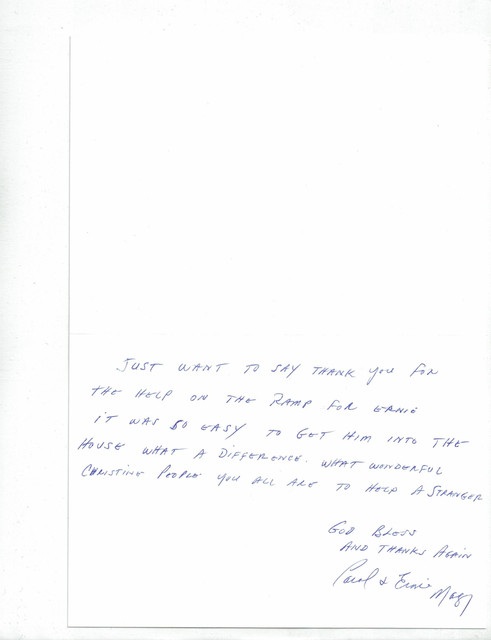 JUST WANT TO SAY THANK YOU FOR
THE HELP ON THE RAMP FOR ERNIE
IT WAS SO EASY TO GET HIM INTO THE
HOUSE WHAT A DIFFERENCE. WHAT WONDERFUL
CHRISTINE PEOPLE YOU ALL ARE TO HELP A STRANGER
GOD BLESS
AND THANKS AGAIN
& Ernie